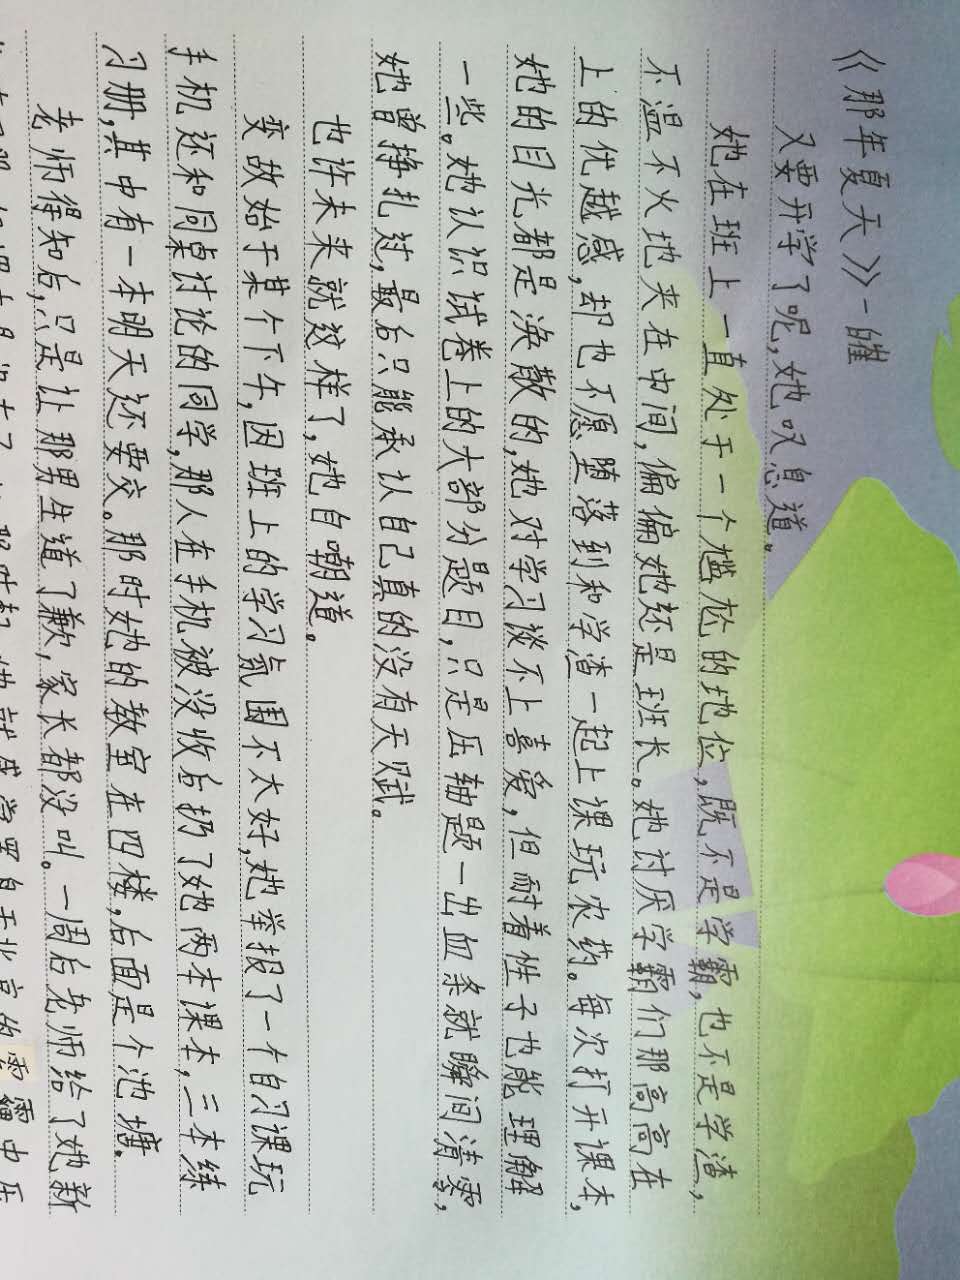 《那年夏天》-皠
又要开学了呢,她叹息道。
她在班上一直处于一个尴尬的地位,既不是学霸,也不是学渣,
不温不火地夹在中间,偏偏她还是班长。她讨厌学霸们那高高在
上的优越感,却也不愿堕落到和学渣一起上课玩农药。每次打开课本,
她的目光都是涣散的,她对学习谈不上喜爱,但耐着性子也能理解
一些。她认识试卷上的大部分题目,只是压轴题一出血条就瞬间清零,
她曾挣扎过,最后只能承认自己真的没有天赋。
也许未来就这样了,她自嘲道。
变故始于某个下午,因班上的学习氛围不太好,她举报了一个自习课玩
手机还和同桌讨论的同学,那人在手机被没收后扔了她两本课本,三本练
习册,其中有一本明天还要交。那时她的教室在四楼,后面是个池塘。
老师得知后,只是让那男生道了歉,家长都没叫。一周后老师给了她新